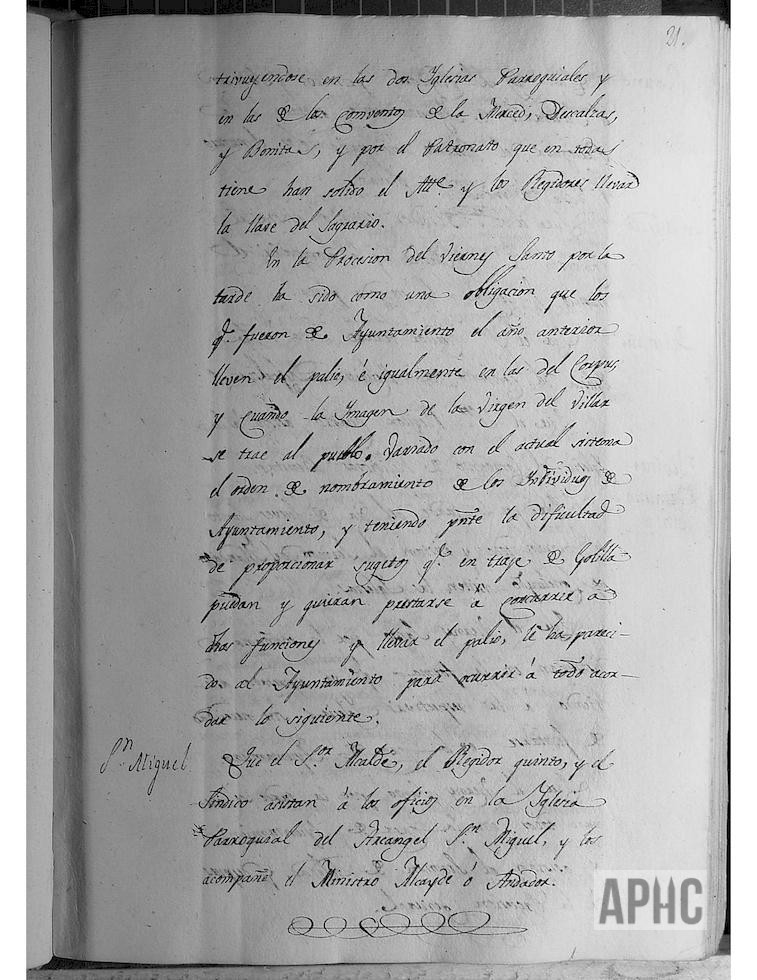 21.
trivuyendose en las dos Yglesias Parroquiales y
en las de los conventos de la Merced, Descalzas,
y Benitas, y por el Patronato que en todas
tiene han solido el Alle y los Regidores llevar
la llave del Sagrario.
En la Procesion del Viernes Santo por la
tarde ha sido como una obligacion que los
q.e fueron de Ayuntamiento el año anterior
lleven el palio, é igualmente en las del Corpus,
y cuando la Imagen de la Virgen del Villar
se trae al pueblo. Variado con el actual sistema
el orden de nombramiento de los Individuos de
Ayuntamiento, y teniendo pnte la dificultad
de proporcionar sugetos q.e en traje de Golilla
puedan y quieran prestarse a concurrir a
dhas funciones y llevar el palio, le ha pareci-
do al Ayuntamiento para ocurrir á todo acor-
dar lo siguiente.
S.n Miguel
Que el S.or Alcalde, el Regidor quinto, y el
Sindico asistan á los oficios en la Yglesia
Parroquial del Arcangel S.n Miguel, y los
acompañe el Ministro Alcayde ó Andador.
APHC